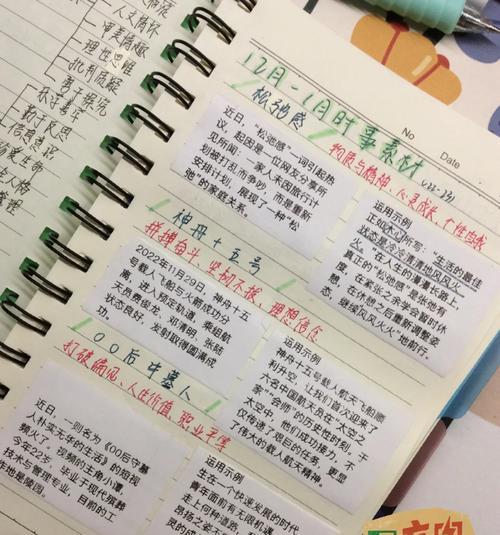 人文情怀
审美情趣
理性思维
批判质疑
勇于探究
乐学善学
勤于反思
信息意识
珍爱生命
管理
12月-1月时事素材
No
Date
松弛感
物质与精神、心灵成长、个性自我
近日,“松弛感”一词引起热
议,起因是一位网友分享所
见所闻:一家人未因旅行计
划被打乱而争吵,而是重新
安排计划,展现了一种“松
弛”的家庭关系。
运用示例
正如木心所写:“生活的最佳
状态是冷冷清清地风风火
火。”在人生的漫漫长路上,
真正的“松弛感”是张弛有
度,在紧张之余会暂时休
息,在休憩之后重新调整姿
态,继续风风火火地前行。
神舟十五号
拼搏奋斗、坚韧不拔、理想信念
2022年11月29日,神舟十五
号载人飞船与火箭成功分
离,进入预定轨道,乘组航
天员费俊龙、邓清明、张陆
状态良好,发射取得圆满成
功。
运用示例
神舟十五号载人航天飞船顺
利升空,让我们首次迎来了
六名中国航天员在“太空之
家”会师”的历史性时刻,于
太空中,他们成功接力,不
仅传递了艰巨的任务,更显
了伟大的载人航天精神。
00后守墓人
打破偏见、人生价值、职业平等
近日,一则名为《00后守墓
人朴实无华的生活》的短视
频火了,视频的主角小谭,
今年22岁,毕业于现代殡葬
技术与管理专业,目前的工
作地是陵园。
运用示例
生在一个快速发展的时代
青年面前有无限机遇
走上何种道路,
昂扬之姿